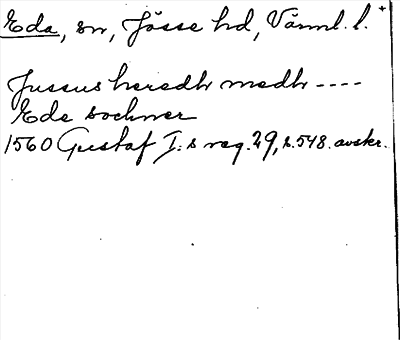 Eda, sn, Jösse hd, Värml. l. +
Jussus heredh medh ----
Ede sochner
1560 Gustaf I:s reg. 29, s. 548. avskr.